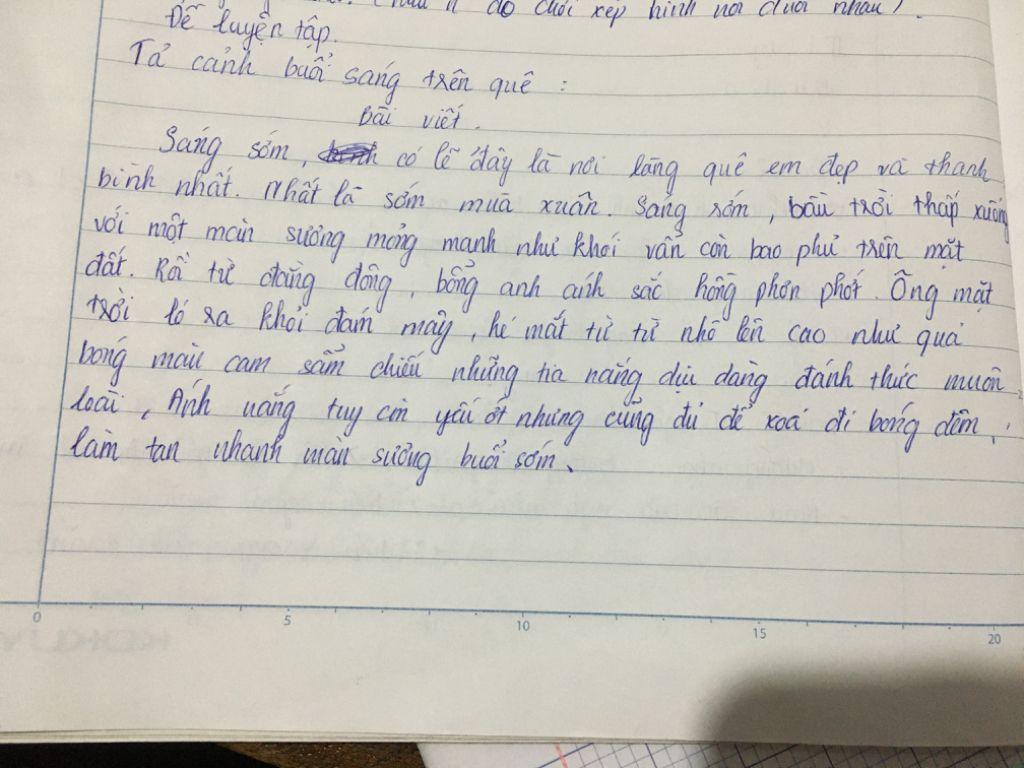 do chơi xếp hình nối đuôi nhau).
Đề luyện tập.
Tả cảnh buổi sáng trên quê :
Bài viết.
Sáng sớm, có lẽ đây là nơi làng quê em đẹp và thanh
bình nhất. Nhất là sớm mùa xuân. Sáng sớm, bầu trời thấp xuống
với một màn sương mỏng manh như khói vẫn còn bao phủ trên mặt
đất. Rồi từ đằng đông, bổng anh ánh sắc hồng phơn phớt. Ông mặt
trời ló ra khỏi đám mây, hé mắt từ từ nhô lên cao như quả
bóng màu cam sẫm chiếu những tia nắng dịu dàng đánh thức muôn
loài, Ánh nắng tuy còn yếu ớt nhưng cũng đủ để xoá đi bóng đêm,
làm tan nhanh màn sương buổi sớm.
0 5 10 15 20